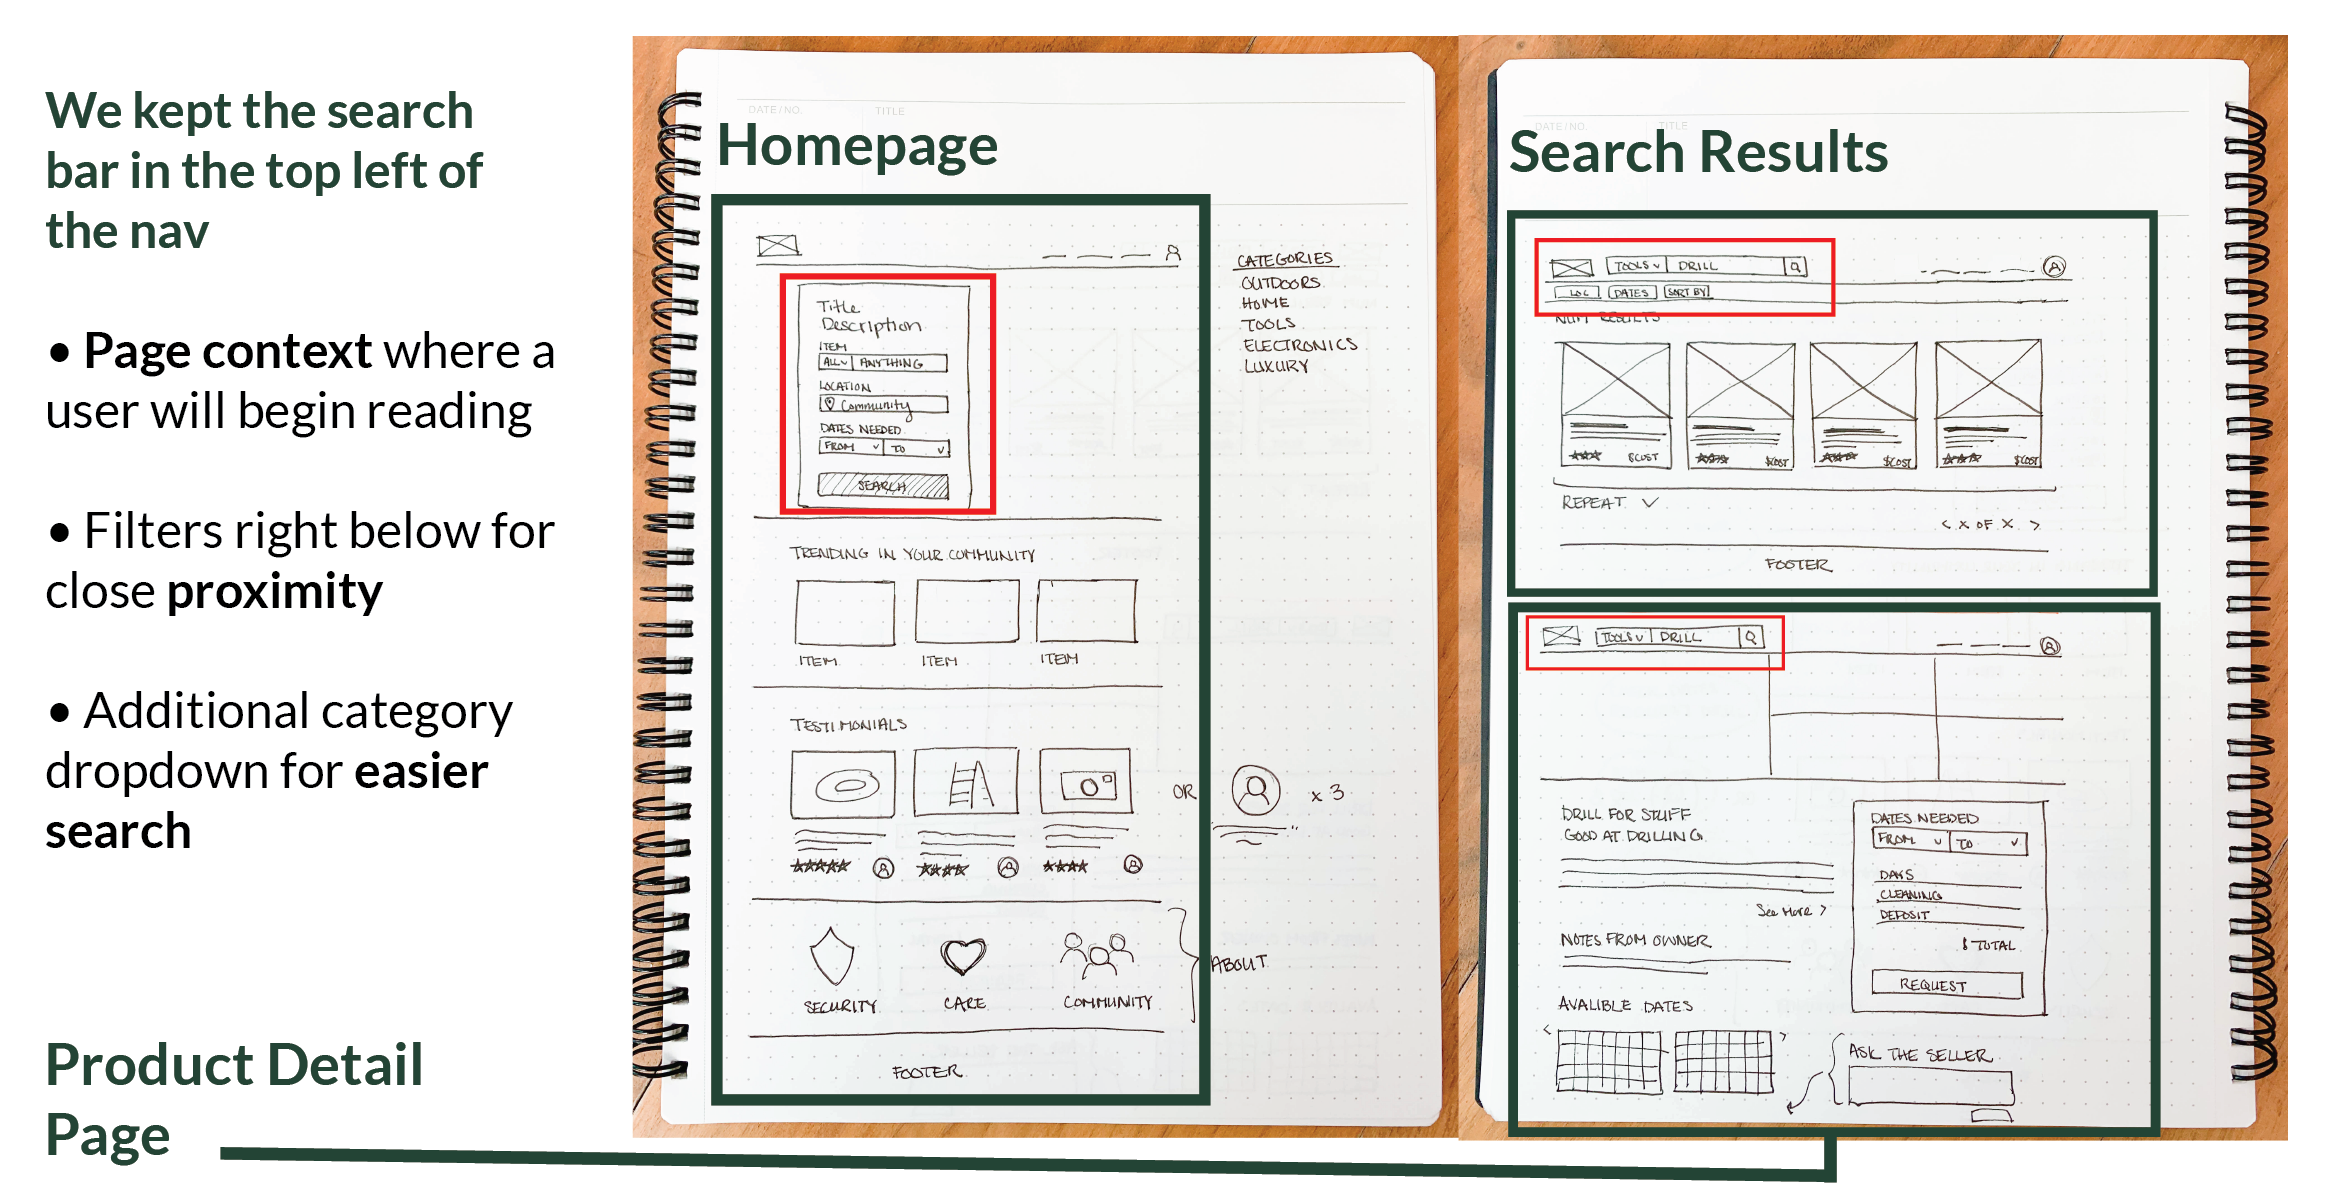 We kept the search
bar in the top left of
the nav
• Page context where a
user will begin reading
• Filters right below for
close proximity
• Additional category
dropdown for easier
search
Product Detail
Page
DATE/NO. TITLE
Homepage
Title
Description
ITEM
ALL ANYTHING
LOCATION
Community
DATES NEEDED
FROM TO
SEARCH
CATEGORIES
OUTDOORS
HOME
TOOLS
ELECTRONICS
LUXURY
TRENDING IN YOUR COMMUNITY
ITEM ITEM ITEM
TESTIMONIALS
OR x 3
SECURITY CARE COMMUNITY
ABOUT
FOOTER
DATE/NO. TITLE
Search Results
TOOLS DRILL
LOC DATES SORT BY
NUM RESULTS
$COST $COST $COST $COST
REPEAT
< X OF X >
FOOTER
TOOLS DRILL
DRILL FOR STUFF
GOOD AT DRILLING
See More >
NOTES FROM OWNER
AVALIBLE DATES
< >
DATES NEEDED
FROM TO
DAYS
CLEANING
DEPOSIT
$ TOTAL
REQUEST
ASK THE SELLER